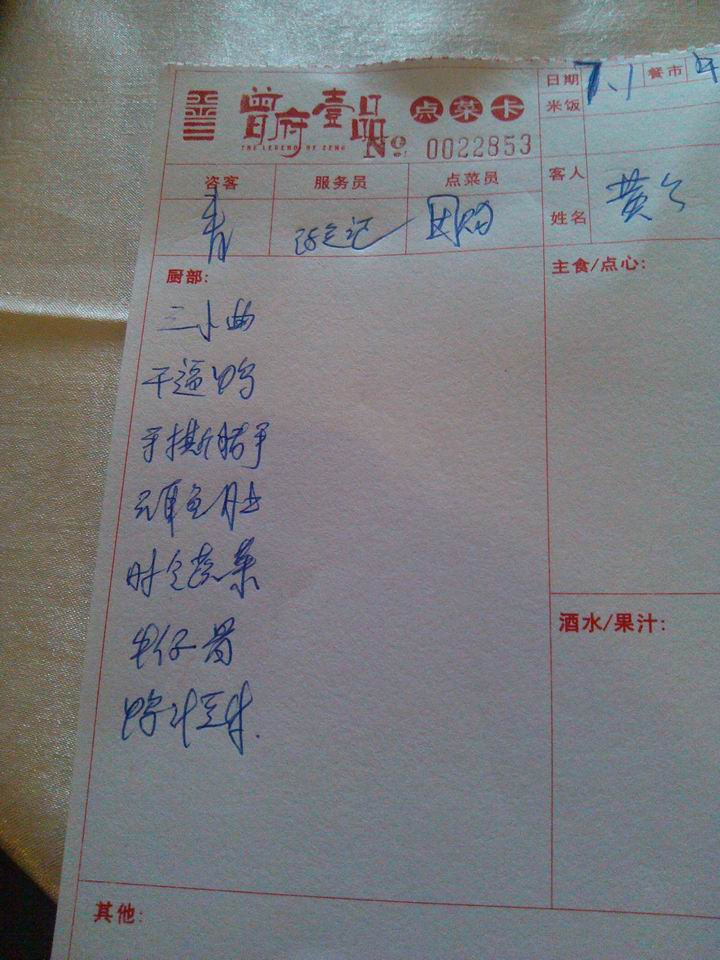 曾府壹品 点菜卡
THE LEGEND OF ZENG
№ 0022853
日期 7.1 餐市 午
米饭
咨客 服务员 点菜员
青 团购
客人姓名 黄
厨部:
主食/点心:
三小曲
干逼鸭
手撕腊
鱼肚
时令蔬菜
牛仔骨
鸭汁豆
酒水/果汁:
其他: